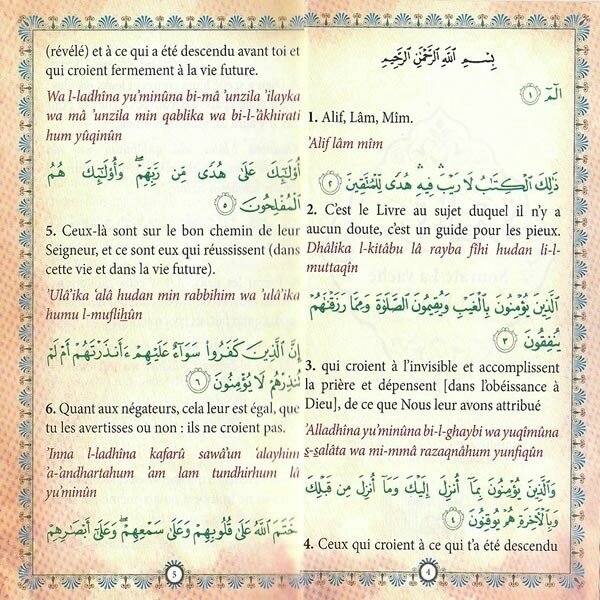 بِسْمِ ٱللَّهِ ٱلرَّحْمَٰنِ ٱلرَّحِيمِ
الٓمٓ ١
1. Alif, Lâm, Mîm.
'Alif lâm mîm
ذَٰلِكَ ٱلْكِتَٰبُ لَا رَيْبَ ۛ فِيهِ ۛ هُدًى لِّلْمُتَّقِينَ ٢
2. C'est le Livre au sujet duquel il n'y a
aucun doute, c'est un guide pour les pieux.
Dhâlika l-kitâbu lâ rayba fîhi hudan li-l-
muttaqîn
ٱلَّذِينَ يُؤْمِنُونَ بِٱلْغَيْبِ وَيُقِيمُونَ ٱلصَّلَوٰةَ وَمِمَّا رَزَقْنَٰهُمْ
يُنفِقُونَ ٣
3. qui croient à l'invisible et accomplissent
la prière et dépensent [dans l'obéissance à
Dieu], de ce que Nous leur avons attribué
'Alladhîna yu'minûna bi-l-ghaybi wa yuqîmûna
ṣ-ṣalâta wa mi-mmâ razaqnâhum yunfiqûn
وَٱلَّذِينَ يُؤْمِنُونَ بِمَآ أُنزِلَ إِلَيْكَ وَمَآ أُنزِلَ مِن قَبْلِكَ
وَبِٱلْأَخِرَةِ هُمْ يُوقِنُونَ ٤
4. Ceux qui croient à ce qui t'a été descendu
4
(révélé) et à ce qui a été descendu avant toi et
qui croient fermement à la vie future.
Wa l-ladhîna yu'minûna bi-mâ 'unzila 'ilayka
wa mâ 'unzila min qablika wa bi-l-'âkhirati
hum yûqinûn
أُو۟لَٰٓئِكَ عَلَىٰ هُدًى مِّن رَّبِّهِمْ ۖ وَأُو۟لَٰٓئِكَ هُمُ
ٱلْمُفْلِحُونَ ٥
5. Ceux-là sont sur le bon chemin de leur
Seigneur, et ce sont eux qui réussissent (dans
cette vie et dans la vie future).
'Ulâ'ika 'alâ hudan min rabbihim wa 'ulâ'ika
humu l-mufliḥûn
إِنَّ ٱلَّذِينَ كَفَرُوا۟ سَوَآءٌ عَلَيْهِمْ ءَأَنذَرْتَهُمْ أَمْ لَمْ
تُنذِرْهُمْ لَا يُؤْمِنُونَ ٦
6. Quant aux négateurs, cela leur est égal, que
tu les avertisses ou non : ils ne croient pas.
'Inna l-ladhîna kafarû sawâ'un 'alayhim
'a-'andhartahum 'am lam tundhirhum lâ
yu'minûn
خَتَمَ ٱللَّهُ عَلَىٰ قُلُوبِهِمْ وَعَلَىٰ سَمْعِهِمْ ۖ وَعَلَىٰٓ أَبْصَٰرِهِمْ
5